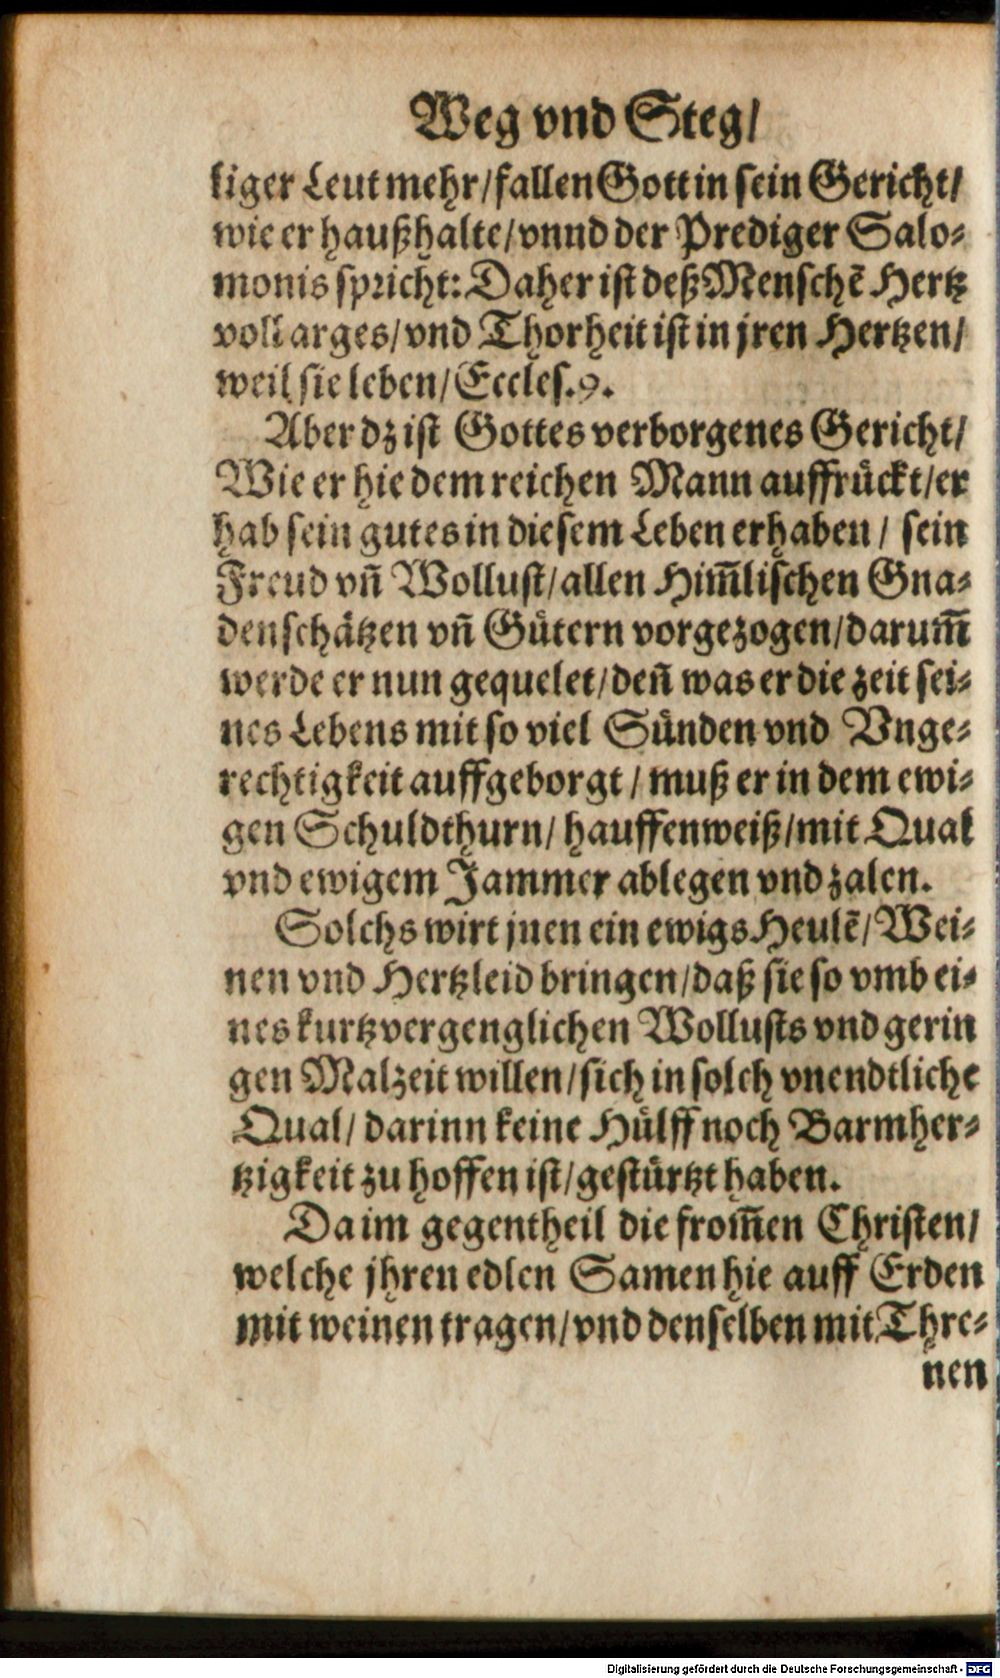 Weg vnd Steg/
kiger Leut mehr/fallen Gott in sein Gericht/
wie er haußhalte/vnnd der Prediger Salo-
monis spricht: Daher ist deß Menschẽ Hertz
voll arges/vnd Thorheit ist in jren Hertzen/
weil sie leben/Eccles.9.
Aber dz ist Gottes verborgenes Gericht/
Wie er hie dem reichen Mann auffrückt/er
hab sein gutes in diesem Leben erhaben/ sein
Freud vñ Wollust/allen Him̃lischen Gna-
denschätzen vñ Gütern vorgezogen/darum̃
werde er nun gequelet/deñ was er die zeit sei-
nes Lebens mit so viel Sünden vnd Vnge-
rechtigkeit auffgeborgt/ muß er in dem ewi-
gen Schuldthurn/ hauffenweiß/mit Qual
vnd ewigem Jammer ablegen vnd zalen.
Solchs wirt jnen ein ewigs Heulẽ/Wei-
nen vnd Hertzleid bringen/daß sie so vmb ei-
nes kurtz vergenglichen Wollusts vnd gerin
gen Malzeit willen/sich in solch vnendtliche
Qual/ darinn keine Hülff noch Barmher-
tzigkeit zu hoffen ist/gestürtzt haben.
Da im gegentheil die from̃en Christen/
welche jhren edlen Samen hie auff Erden
mit weinen tragen/vnd denselben mit Thre-
nen
Digitalisierung gefördert durch die Deutsche Forschungsgemeinschaft - DFG